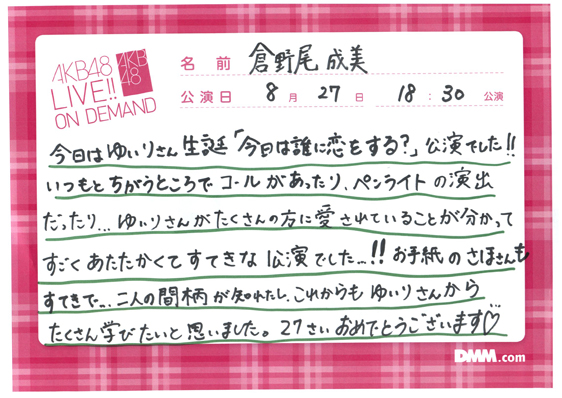 AKB48
LIVE!!
ON DEMAND
AKB
48
名前 倉野尾成美
公演日 8月27日 18:30公演
今日はゆいりさん生誕「今日は誰に恋をする?」公演でした!!
いつもとちがうところでコールがあったり、ペンライトの演出
だったり...ゆいりさんがたくさんの方に愛されていることが分かって
すごくあたたかくてすてきな公演でした...!!お手紙のさほさんも
すてきで...二人の間柄が知れたし、これからもゆいりさんから
たくさん学びたいと思いました。27さいおめでとうございます♡
DMM.com